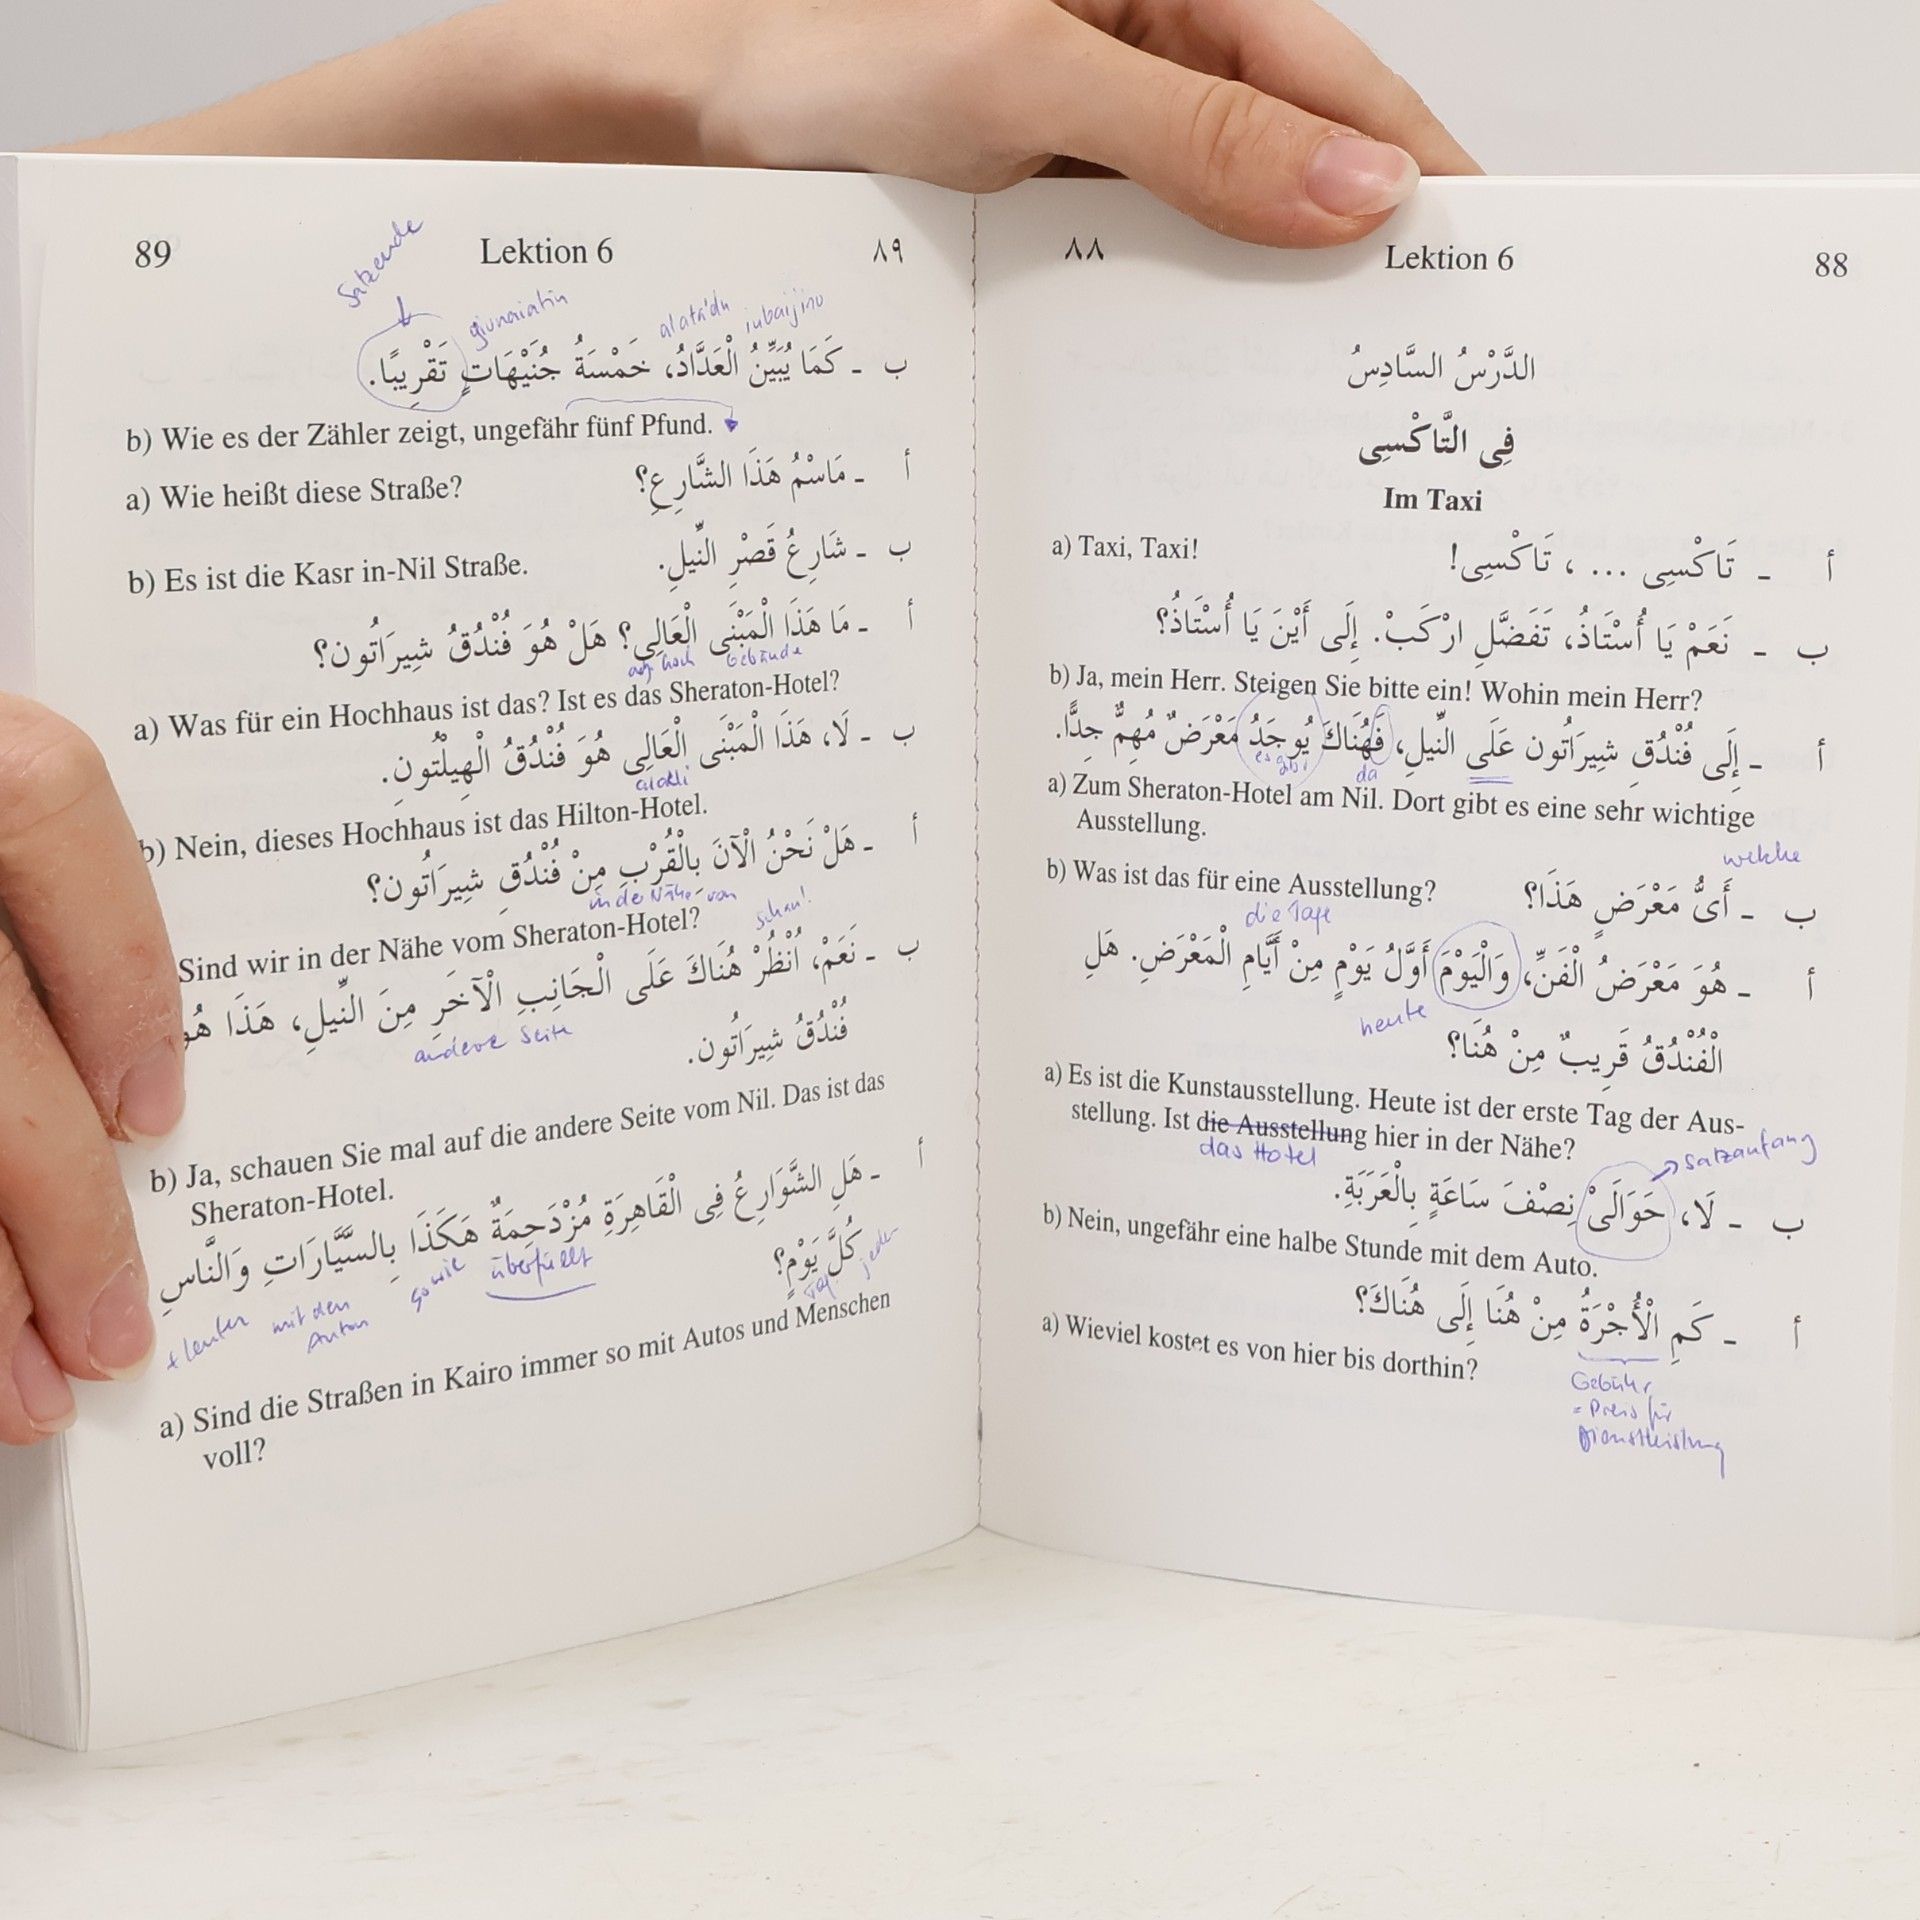 ٨٨ Lektion 6 88
الدَّرْسُ السَّادِسُ
فِى التَّاكْسِى
Im Taxi
a) Taxi, Taxi!
أ ـ تَاكْسِى ... ، تَاكْسِى!
ب ـ نَعَمْ يَا أُسْتَاذُ، تَفَضَّلِ ارْكَبْ. إِلَى أَيْنَ يَا أُسْتَاذُ؟
b) Ja, mein Herr. Steigen Sie bitte ein! Wohin mein Herr?
أ ـ إِلَى فُنْدُقِ شِيرَاتُون عَلَى النِّيلِ، فَهُنَاكَ يُوجَدُ مَعْرَضٌ مُهِمٌّ جِدًّا.
es gibt
da
a) Zum Sheraton-Hotel am Nil. Dort gibt es eine sehr wichtige
Ausstellung.
welche
b) Was ist das für eine Ausstellung?
ب ـ أَىُّ مَعْرَضٍ هَذَا؟
die Tage
أ ـ هُوَ مَعْرَضُ الْفَنِّ، وَالْيَوْمَ أَوَّلُ يَوْمٍ مِنْ أَيَّامِ الْمَعْرَضِ. هَلِ
heute
الْفُنْدُقُ قَرِيبٌ مِنْ هُنَا؟
a) Es ist die Kunstausstellung. Heute ist der erste Tag der Aus-
stellung. Ist die Ausstellung hier in der Nähe?
das Hotel
Satzanfang
ب ـ لَا، حَوَالَىْ نِصْفَ سَاعَةٍ بِالْعَرَبَةِ.
b) Nein, ungefähr eine halbe Stunde mit dem Auto.
أ ـ كَمِ الْأُجْرَةُ مِنْ هُنَا إِلَى هُنَاكَ؟
a) Wieviel kostet es von hier bis dorthin?
Gebühr
= Preis für
Dienstleistung
89 Lektion 6 ٨٩
Satzende
alatádu
iubaijinu
ب ـ كَمَا يُبَيِّنُ الْعَدَّادُ، خَمْسَةُ جُنَيْهَاتٍ تَقْرِيبًا.
b) Wie es der Zähler zeigt, ungefähr fünf Pfund.
أ ـ مَاسْمُ هَذَا الشَّارِعِ؟
a) Wie heißt diese Straße?
ب ـ شَارِعُ قَصْرِ النِّيلِ.
b) Es ist die Kasr in-Nil Straße.
أ ـ مَا هَذَا الْمَبْنَى الْعَالِى؟ هَلْ هُوَ فُنْدُقُ شِيرَاتُون؟
hoch
Gebäude
a) Was für ein Hochhaus ist das? Ist es das Sheraton-Hotel?
ب ـ لَا، هَذَا الْمَبْنَى الْعَالِى هُوَ فُنْدُقُ الْهِيلْتُونِ.
b) Nein, dieses Hochhaus ist das Hilton-Hotel.
أ ـ هَلْ نَحْنُ الْآنَ بِالْقُرْبِ مِنْ فُنْدُقِ شِيرَاتُون؟
in der Nähe von
schau!
Sind wir in der Nähe vom Sheraton-Hotel?
ب ـ نَعَمْ، اُنْظُرْ هُنَاكَ عَلَى الْجَانِبِ الْآخَرِ مِنَ النِّيلِ، هَذَا هُوَ
andere Seite
فُنْدُقُ شِيرَاتُون.
b) Ja, schauen Sie mal auf die andere Seite vom Nil. Das ist das
Sheraton-Hotel.
أ ـ هَلِ الشَّوَارِعُ فِى الْقَاهِرَةِ مُزْدَحِمَةٌ هَكَذَا بِالسَّيَّارَاتِ وَالنَّاسِ
überfüllt
sowie
mit den
Autos
+ Leuten
كُلَّ يَوْمٍ؟
Tag
jeder
a) Sind die Straßen in Kairo immer so mit Autos und Menschen
voll?